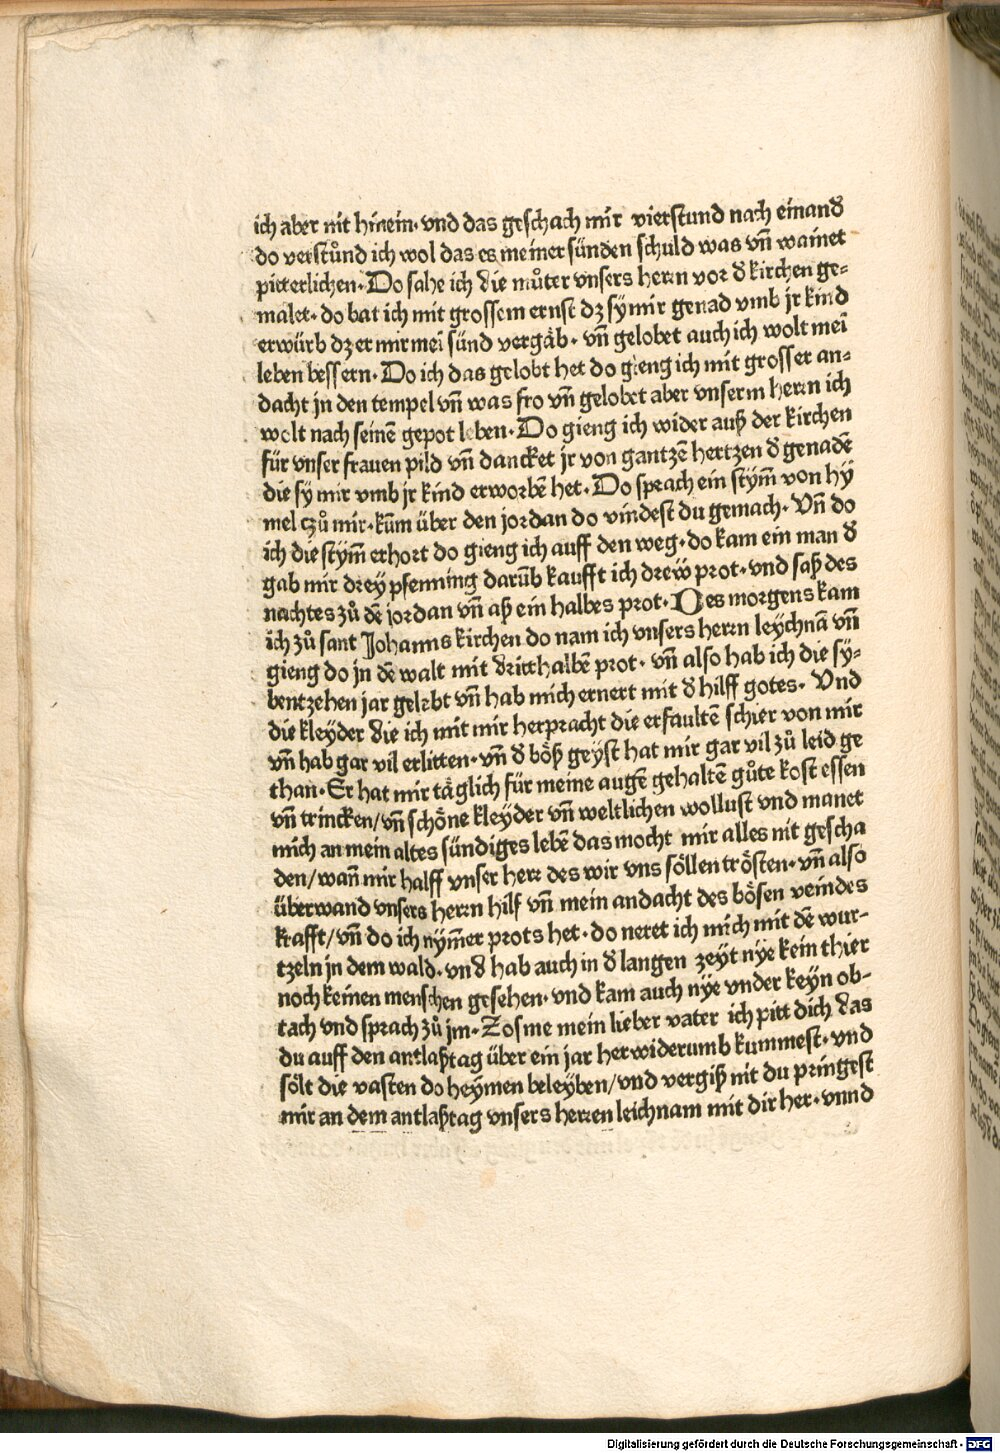 ich aber nit hinein· vnd das geschach mir vierstund nach einand
do verstůnd ich wol das es meiner sünden schuld was vñ wainet
pitterlichen· Do sahe ich die můter vnsers herrn vor d̕ kirchen ge⸗
malet· do bat ich mit grossem ernst dz sy mir genad vmb jr kind
erwürb dz er mir mei sünd vergäb· vñ gelobet auch ich wolt mei
leben bessern· Do ich das gelobt het do gieng ich mit grosser an⸗
dacht jn den tempel vñ was fro vñ gelobet aber vnserm herrn ich
wolt nach seinē gepot leben· Do gieng ich wider auß der kirchen
für vnser frauen pild vñ dancket jr von gantzē hertzen d̕ genadē
die sy mir vmb jr kind erworbē het· Do sprach ein stym̄ von hy
mel czů mir· kum̄ über den jordan do vindest du gemach· Vñ do
ich die stym̄ erhort do gieng ich auff den weg· do kam ein man d̕
gab mir drey pfenning darūb kaufft ich drew prot· vnd saß des
nachtes zů dē jordan vñ aß ein halbes prot· Des morgens kam
ich zů sant Johanns kirchen do nam ich vnsers herrn leychnā vñ
gieng do jn dē walt mit dritthalbē prot· vñ also hab ich die sy⸗
bentzehen jar gelebt vñ hab mich ernert mit d̕ hilff gotes· Vnd
die kleyder die ich mit mir herpracht die erfaultē schier von mir
vñ hab gar vil erlitten· vñ d̕ böß geyst hat mir gar vil zů leid ge
than· Er hat mir täglich für meine augē gehaltē gůte kost essen
vñ trincken/vñ schöne kleyder vñ weltlichen wollust vnd manet
mich an mein altes sündiges lebē das mocht mir alles nit gescha
den/wañ mir halff vnser herr des wir vns söllen trösten· vñ also
überwand vnsers herrn hilf vñ mein andacht des bösen veindes
krafft/vñ do ich nym̄er prots het· do neret ich mich mit dē wur⸗
tzeln jn dem wald· vnd̕ hab auch in d̕ langen zeyt nye kein thier
noch keinen menschen gesehen· vnd kam auch nye vnder keyn ob⸗
tach vnd sprach zů jm· Zosme mein lieber vater ich pitt dich das
du auff den antlaßtag über ein jar herwiderumb kummest· vnd
sölt die vasten do heymen beleyben/vnd vergiß nit du pringest
mir an dem antlaßtag vnsers herren leichnam mit dir her· vnnd
Digitalisierung gefördert durch die Deutsche Forschungsgemeinschaft - DFG